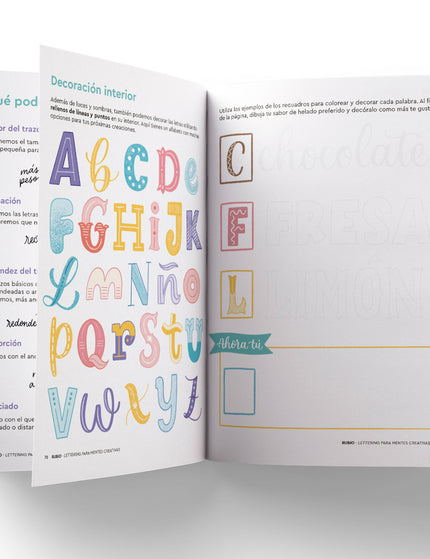 qué pod
or del trazo
nemos el tama
pequeña para
más
peso
nación
mos las letras
aremos que no
red
ndez del t
zos básicos
ondeadas o a
mo, más an
redonde
orción
os con el an
m
a
ciado
o con el que
ado o distan
RUBIO · LETTERING PAR
Decoración interior
Además de luces y sombras, también podemos decorar las letras utilizando
rellenos de líneas y puntos en su interior. Aquí tienes un alfabeto con muchas
opciones para tus próximas creaciones.
A b C D e
F G H i J K
L m N ñ O
p Q R S t U
V w x y z
70 RUBIO · LETTERING PARA MENTES CREATIVAS
Utiliza los ejemplos de los recuadros para colorear y decorar cada palabra. Al fi
de la página, dibuja tu sabor de helado preferido y decóralo como más te gust
C chocolate
F FRESA
L LIMÓN
Ahora tú
RUBIO · LETTERING PARA MENTES CREATIVAS